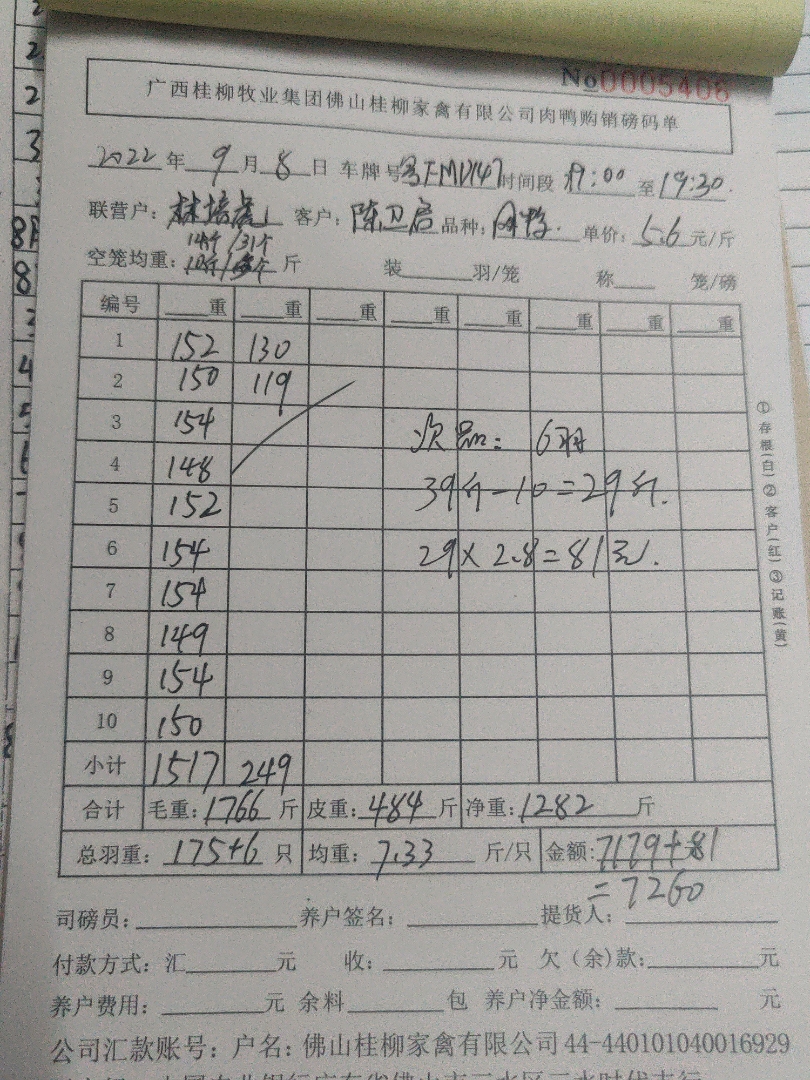 No0005406
广西桂柳牧业集团佛山桂柳家禽有限公司肉鸭购销磅码单
2022年9月8日 车牌号 时间段19:00至19:30.
联营户: 林培虎 客户: 陈卫启 品种: 单价: 5.6元/斤
14斤/31个
空笼均重: 斤 装____羽/笼 称____笼/磅
编号 ____重 ____重 ____重 ____重 ____重 ____重 ____重 ____重
1 152 130
2 150 119
3 154 次品: 6羽
4 148
5 152 39斤-10=29斤.
6 154 29×2.8=81元.
7 154
8 149
9 154
10 150
小计 1517 249
合计 毛重: 1766斤 皮重: 484斤 净重: 1282斤
总羽重: 175+6只 均重: 7.33斤/只 金额: 7179+81元
=7260
司磅员:____ 养户签名:____ 提货人:____
付款方式: 汇____元 收:____元 欠(余)款:____元
养户费用:____元 余料____包 养户净金额:____元
公司汇款账号: 户名: 佛山桂柳家禽有限公司 44-440101040016929
①存根(白)②客户(红)③记账(黄)